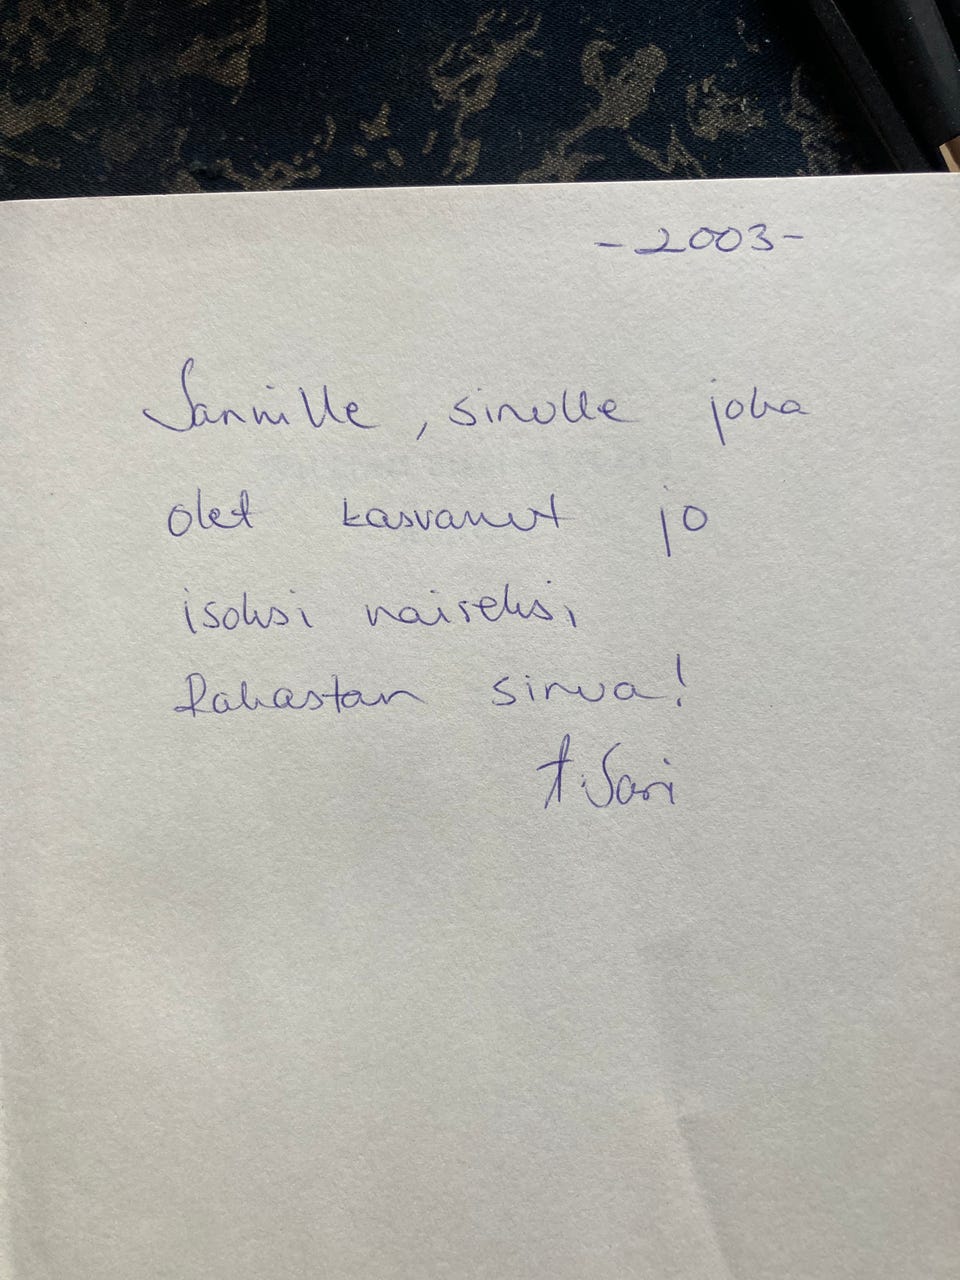 -2003-
Sannille, sinulle joka
olet kasvanut jo
isoksi naiseksi,
Rakastan sinua!
t. Sari